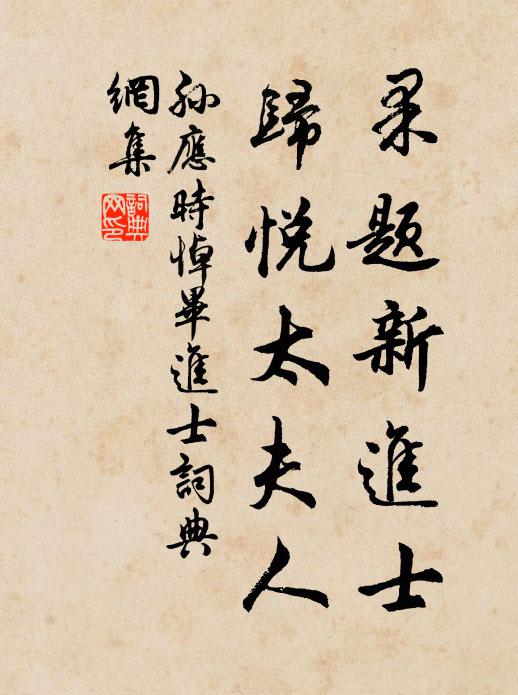 果題新進士
歸悅太夫人
孫應時悼畢進士詞典
網集
詞典
网印